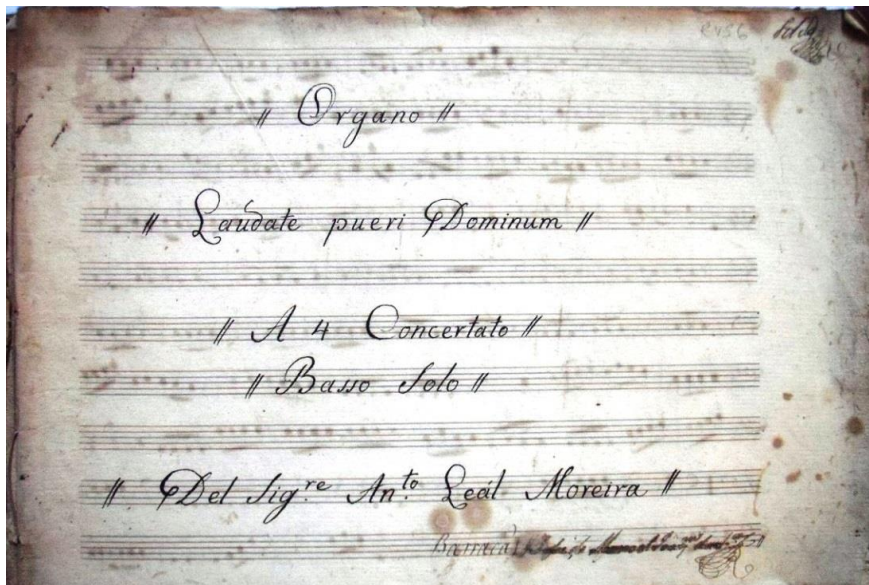 RVS6
// Organo //
// Laudate pueri Dominum //
// A 4 Concertato //
// Basso Solo //
// Del Sig.re An.to Leál Moreira //